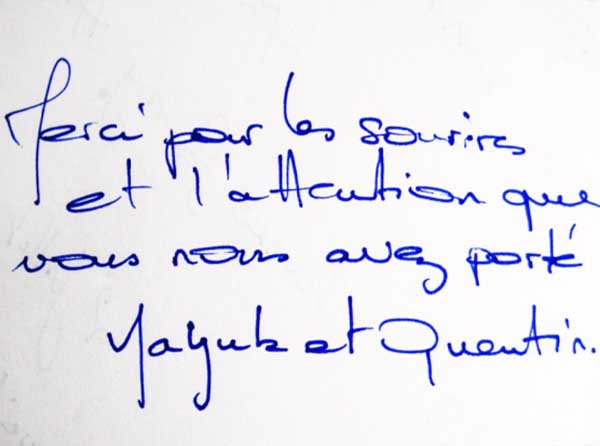 Merci pour les sourires
et l'attention que
vous nous avez porté
et Quentin.